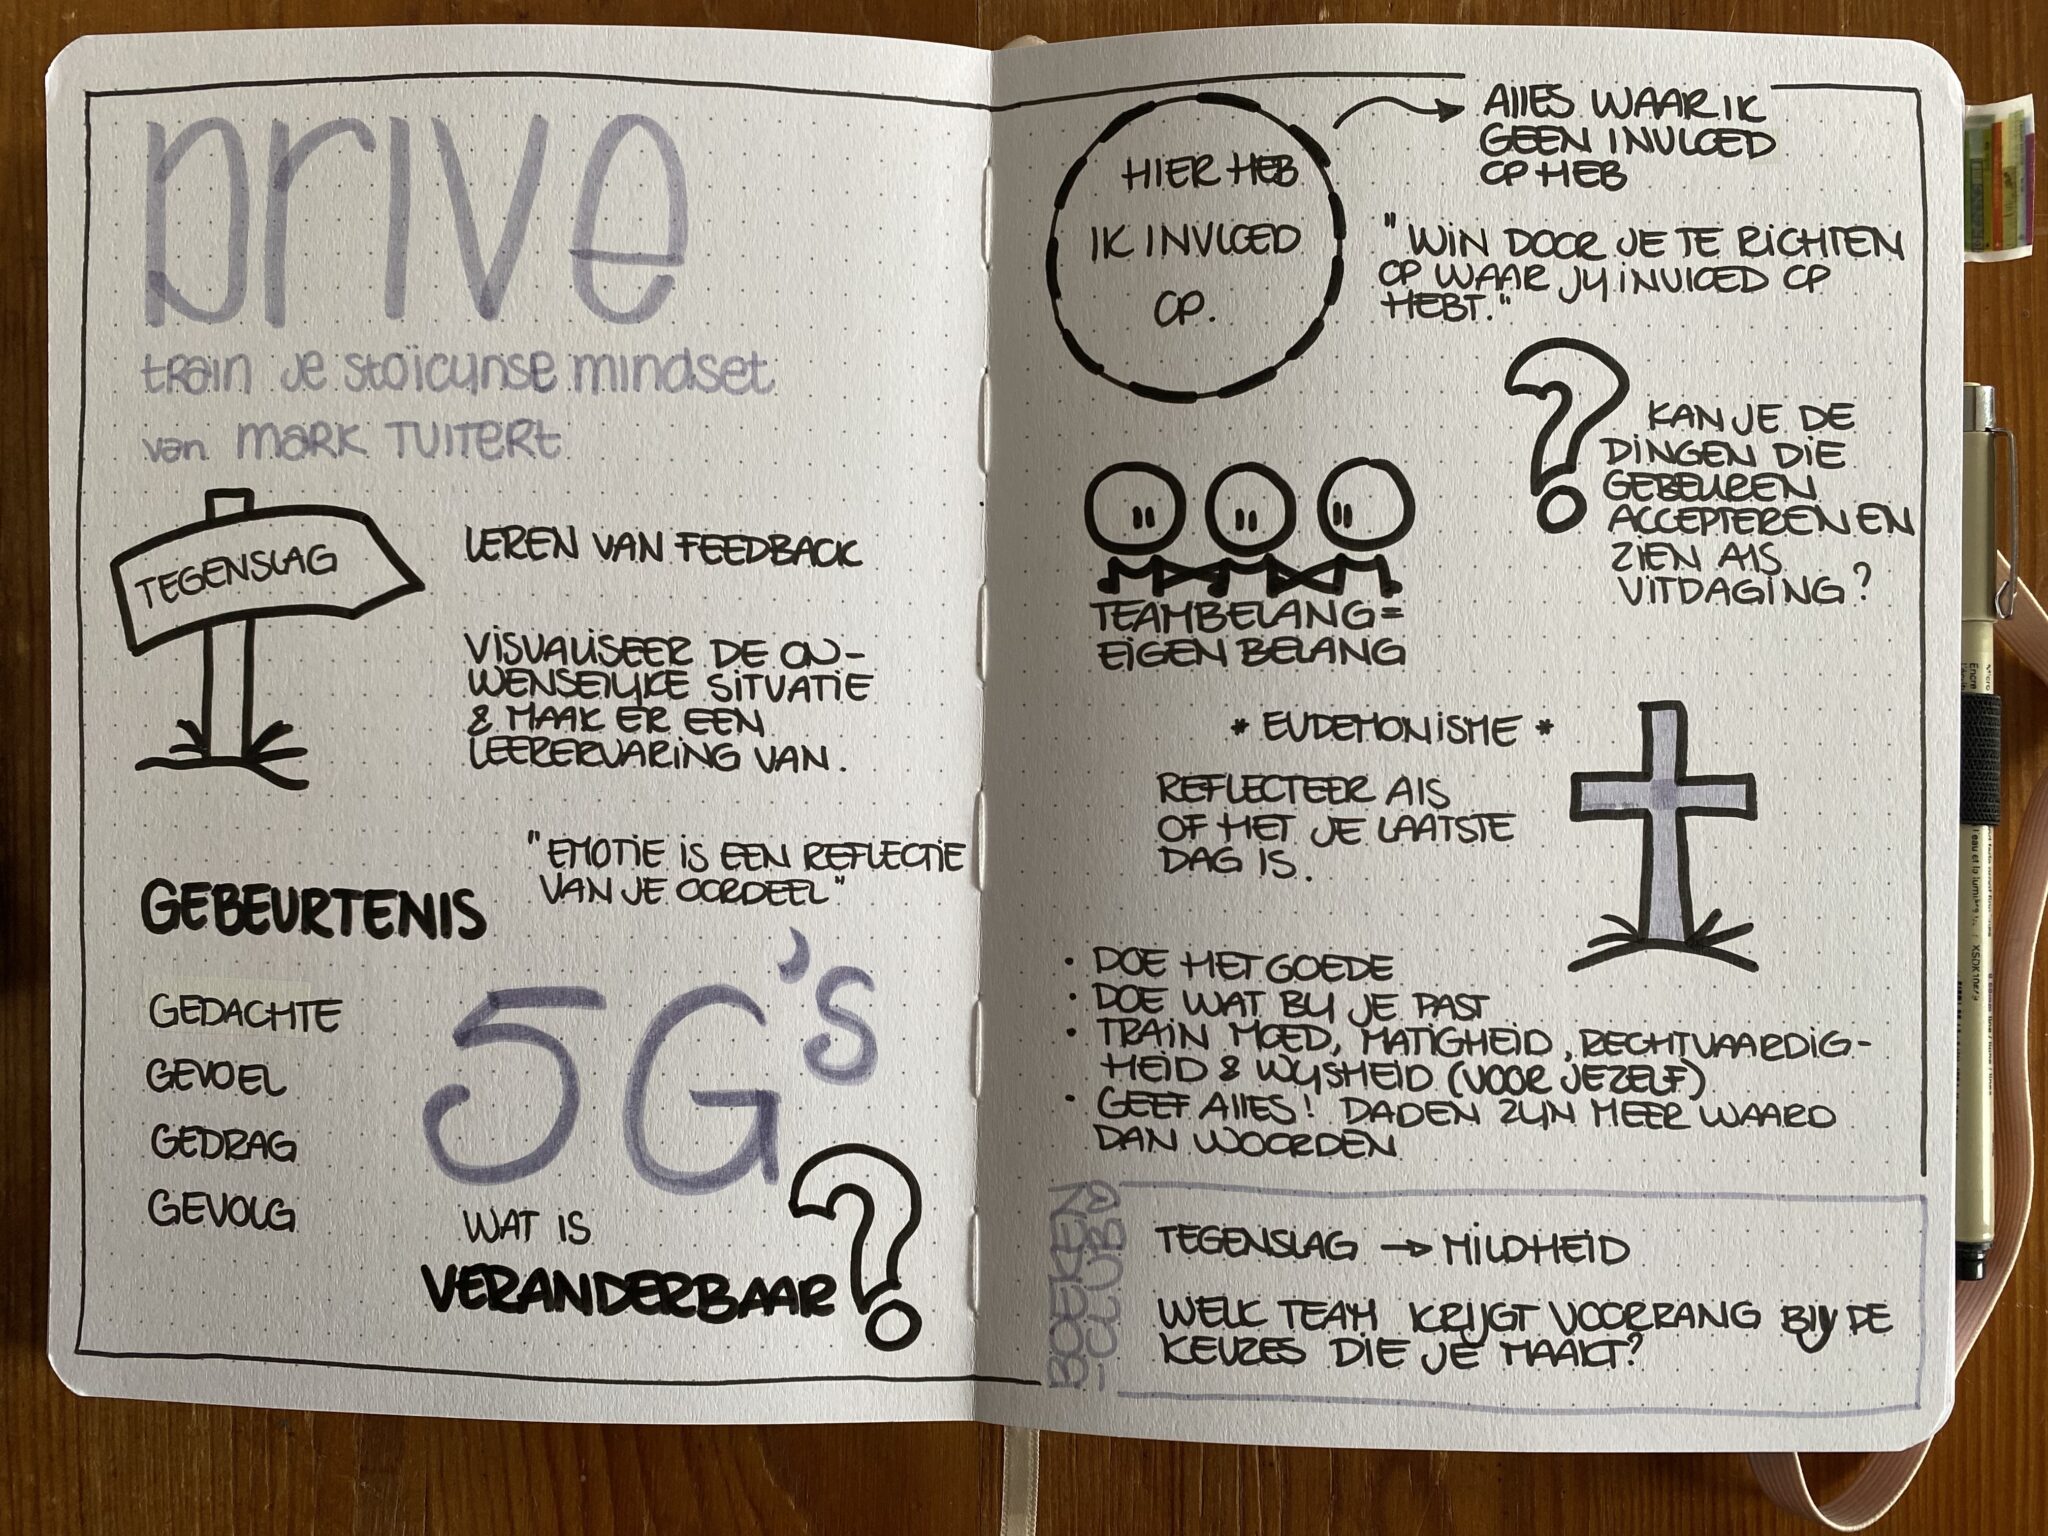 Drive
train je stoïcijnse mindset
van Mark Tuitert
TEGENSLAG
LEREN VAN FEEDBACK
VISUALISEER DE ON-
WENSELIJKE SITUATIE
& MAAK ER EEN
LEERERVARING VAN.
"EMOTIE IS EEN REFLECTIE
VAN JE OORDEEL"
GEBEURTENIS
GEDACHTE
GEVOEL
GEDRAG
GEVOLG
5G's
WAT IS
VERANDERBAAR?
HIER HEB
IK INVLOED
OP.
ALLES WAAR IK
GEEN INVLOED
OP HEB
"WIN DOOR JE TE RICHTEN
OP WAAR JIJ INVLOED OP
HEBT."
? KAN JE DE
DINGEN DIE
GEBEUREN
ACCEPTEREN EN
ZIEN ALS
UITDAGING?
TEAMBELANG =
EIGEN BELANG
* EUDEMONISME *
REFLECTEER ALS
OF HET JE LAATSTE
DAG IS.
• DOE HET GOEDE
• DOE WAT BIJ JE PAST
• TRAIN MOED, MATIGHEID, RECHTVAARDIG-
HEID & WIJSHEID (VOOR JEZELF)
• GEEF ALLES! DADEN ZIJN MEER WAARD
DAN WOORDEN
BOEKEN
-CLUB
TEGENSLAG → MILDHEID
WELK TEAM KRIJGT VOORRANG BIJ DE
KEUZES DIE JE MAAKT?